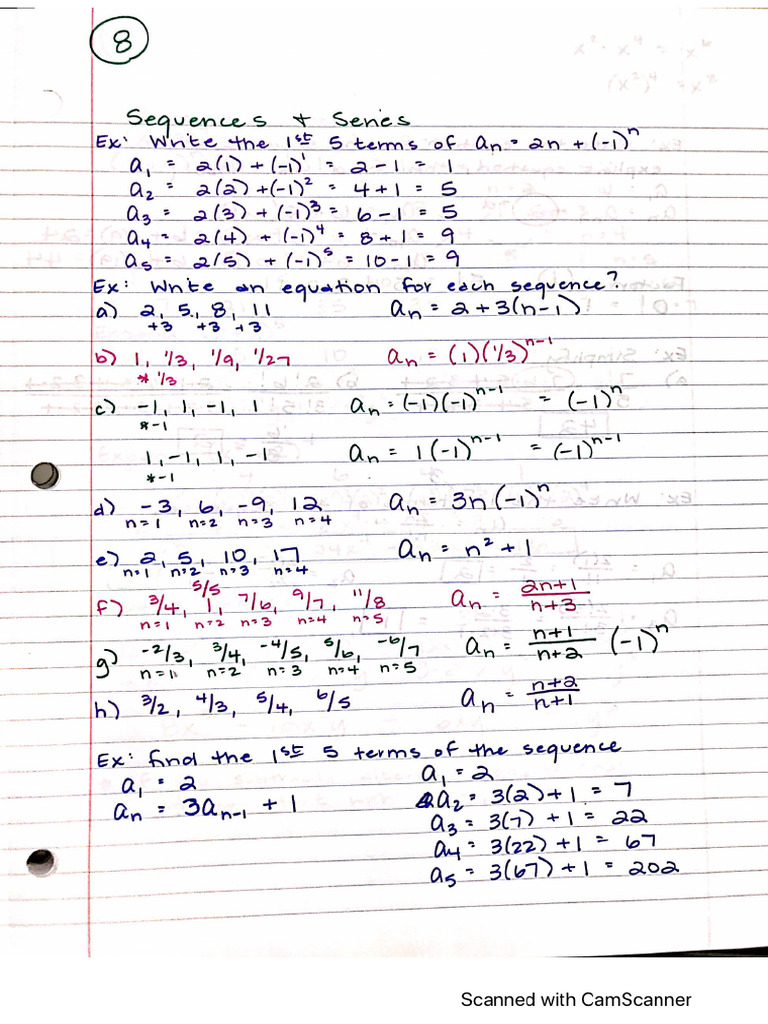 8
Sequences + Series
Ex: Write the 1st 5 terms of aₙ = 2n + (-1)ⁿ
a₁ = 2(1) + (-1)¹ = 2 - 1 = 1
a₂ = 2(2) + (-1)² = 4 + 1 = 5
a₃ = 2(3) + (-1)³ = 6 - 1 = 5
a₄ = 2(4) + (-1)⁴ = 8 + 1 = 9
a₅ = 2(5) + (-1)⁵ = 10 - 1 = 9
Ex: Write an equation for each sequence?
a) 2, 5, 8, 11 aₙ = 2 + 3(n-1)
+3 +3 +3
b) 1, 1/3, 1/9, 1/27 aₙ = (1)(1/3)ⁿ⁻¹
* 1/3
c) -1, 1, -1, 1 aₙ = (-1)(-1)ⁿ⁻¹ = (-1)ⁿ
*-1
1, -1, 1, -1 aₙ = 1(-1)ⁿ⁻¹ = (-1)ⁿ⁻¹
*-1
d) -3, 6, -9, 12 aₙ = 3n(-1)ⁿ
n=1 n=2 n=3 n=4
e) 2, 5, 10, 17 aₙ = n² + 1
n=1 n=2 n=3 n=4
5/5
f) 3/4, 1, 7/6, 9/7, 11/8 aₙ = 2n+1/n+3
n=1 n=2 n=3 n=4 n=5
g) -2/3, 3/4, -4/5, 5/6, -6/7 aₙ = n+1/n+2 (-1)ⁿ
n=1 n=2 n=3 n=4 n=5
h) 3/2, 4/3, 5/4, 6/5 aₙ = n+2/n+1
Ex: find the 1st 5 terms of the sequence
a₁ = 2 a₁ = 2
aₙ = 3aₙ₋₁ + 1 a₂ = 3(2) + 1 = 7
a₃ = 3(7) + 1 = 22
a₄ = 3(22) + 1 = 67
a₅ = 3(67) + 1 = 202
Scanned with CamScanner